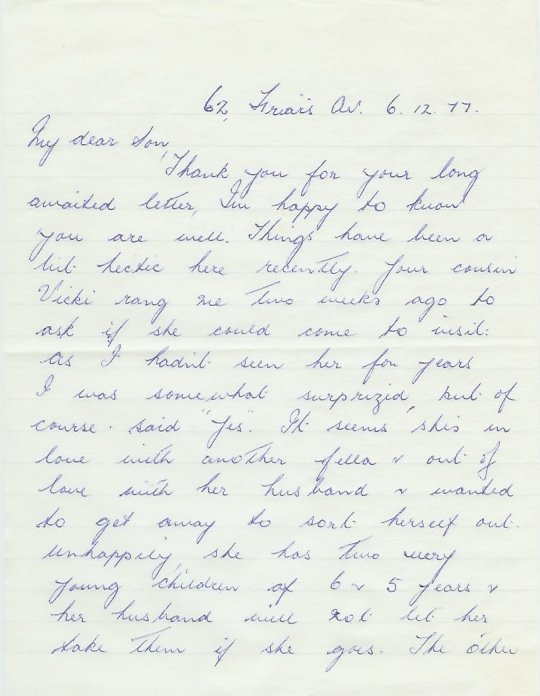 62, Friars Av. 6.12.77.
My dear Son,
Thank you for your long
awaited letter, I'm happy to know
you are well. Things have been a
bit hectic here recently. Your cousin
Vicki rang me two weeks ago to
ask if she could come to visit:
as I hadn't seen her for years
I was somewhat surprizid, but of
course. said "yes". It seems she's in
love with another fella & out of
love with her husband & wanted
to get away to sort herself out.
Unhappily, she has two very
young children of 6 & 5 years &
her husband will not let her
take them if she goes. The other